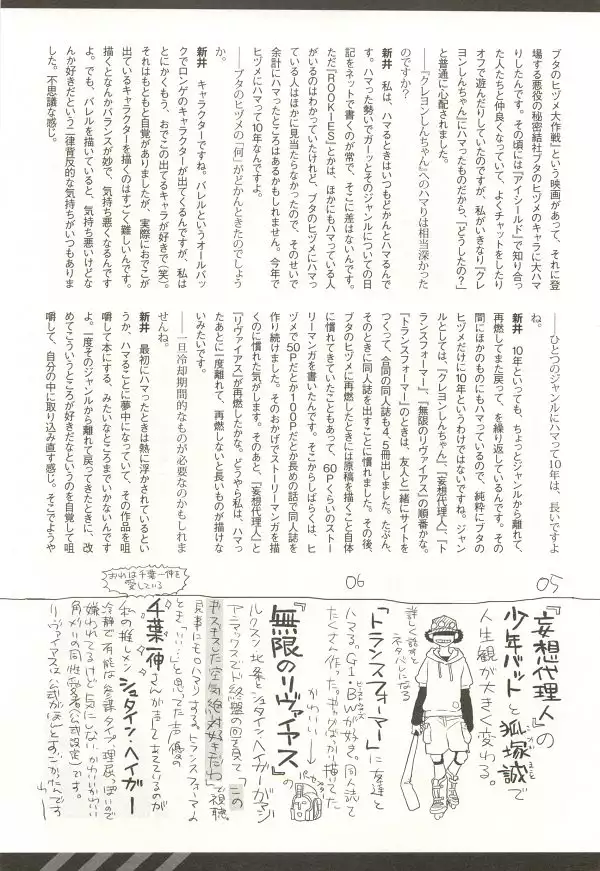 ブタのヒヅメ大作戦』という映画があって、それに登
場する悪役の秘密結社ブタのヒヅメのキャラに大ハマ
りしたんです。その頃には『アイシールド』で知り合っ
た人たちと仲良くなっていて、よくチャットをしたり
オフで遊んだりしていたのですが、私がいきなり『クレ
ヨンしんちゃん』にハマったものだから、「どうしたの?」
と普通に心配されました。
──『クレヨンしんちゃん』へのハマりは相当深かった
のですか?
新井　私は、ハマるときはいつもどかんとハマるんで
す。ハマった勢いでガーッとそのジャンルについての日
記をネットで書くのが常で、そこに差はないんです。
ただ『ROOKIES』とかは、ほかにもハマっている人
がいるのはわかっていたけれど、ブタのヒヅメにハマっ
ている人はほかに見当たらなかったので、そのせいで
余計にハマったところはあるかもしれません。今年で
ヒヅメにハマって10年なんですよ。
──ブタのヒヅメの「何」がどかんときたのでしょう
か。
新井　キャラクターですね。バレルというオールバッ
クでロンゲのキャラクターが出てくるんですが、私は
とにかくもう、おでこの出てるキャラが好きで(笑)。
それはもともと自覚がありましたが、実際におでこが
出ているキャラクターを描くのはすごく難しいんです。
描くとなんかバランスが妙で、気持ち悪くなるんです
よ。でも、バレルを描いていると、気持ち悪いけどな
んか好きだという二律背反的な気持ちがいつもありま
した。不思議な感じ。
──ひとつのジャンルにハマって10年は、長いですよ
ね。
新井　10年といっても、ちょっとジャンルから離れて、
再燃してまた戻って、を繰り返しているんです。その
間にほかのものにもハマっているので、純粋にブタの
ヒヅメだけに10年というわけではないですね。ジャン
ルとしては、『クレヨンしんちゃん』、『妄想代理人』、『ト
ランスフォーマー』、『無限のリヴァイアス』の順番かな。
『トランスフォーマー』のときは、友人と一緒にサイトを
つくって、合同の同人誌も4、5冊出しました。たぶん、
そのときに同人誌を出すことに慣れました。その後、
ブタのヒヅメに再燃したときには原稿を描くこと自体
に慣れてきていたこともあって、60Pくらいのストー
リーマンガを書いたんです。そこからしばらくは、ヒ
ヅメで50Pだとか100Pだとか長めの話で同人誌を
作り続けました。そのおかげでストーリーマンガを描
くのに慣れた気がします。そのあと、『妄想代理人』と
『リヴァイアス』が再燃したかな。どうやら私は、ハマっ
たあとに一度離れて、再燃しないと長いものが描けな
いみたいです。
──一旦冷却期間的なものが必要なのかもしれま
せんね。
新井　最初にハマったときは熱に浮かされているとい
うか、ハマることに夢中になっていて、その作品を咀
嚼して本にする、みたいなところまでいかないんです
よ。一度そのジャンルから離れて戻ってきたときに、改
めてこういうところが好きだなというのを自覚して咀
嚼して、自分の中に取り込み直す感じ。そこでようや
05
『妄想代理人』の
少年バットと狐塚誠で
人生観が大きく変わる。
詳しく話すと
ネタバレになる
06
「トランスフォーマー」に友達と
ハマる。G1・BWが好き。同人誌で
たくさん作った。
かわいい
『無限のリヴァイアス』の
ルクスン北条とシュタイン・ヘイガーが
見事にもハマりする。トランスフォーマーの
とき「いい…」と思ってた声優の
千葉一伸さんが声をあてているのが
私の推しメンシュタイン・ヘイガー
冷静で有能な参謀タイプ。理屈っぽいので
嫌われてるけど気にしない。かわいいかわいい
おれは千葉一伸を
愛している